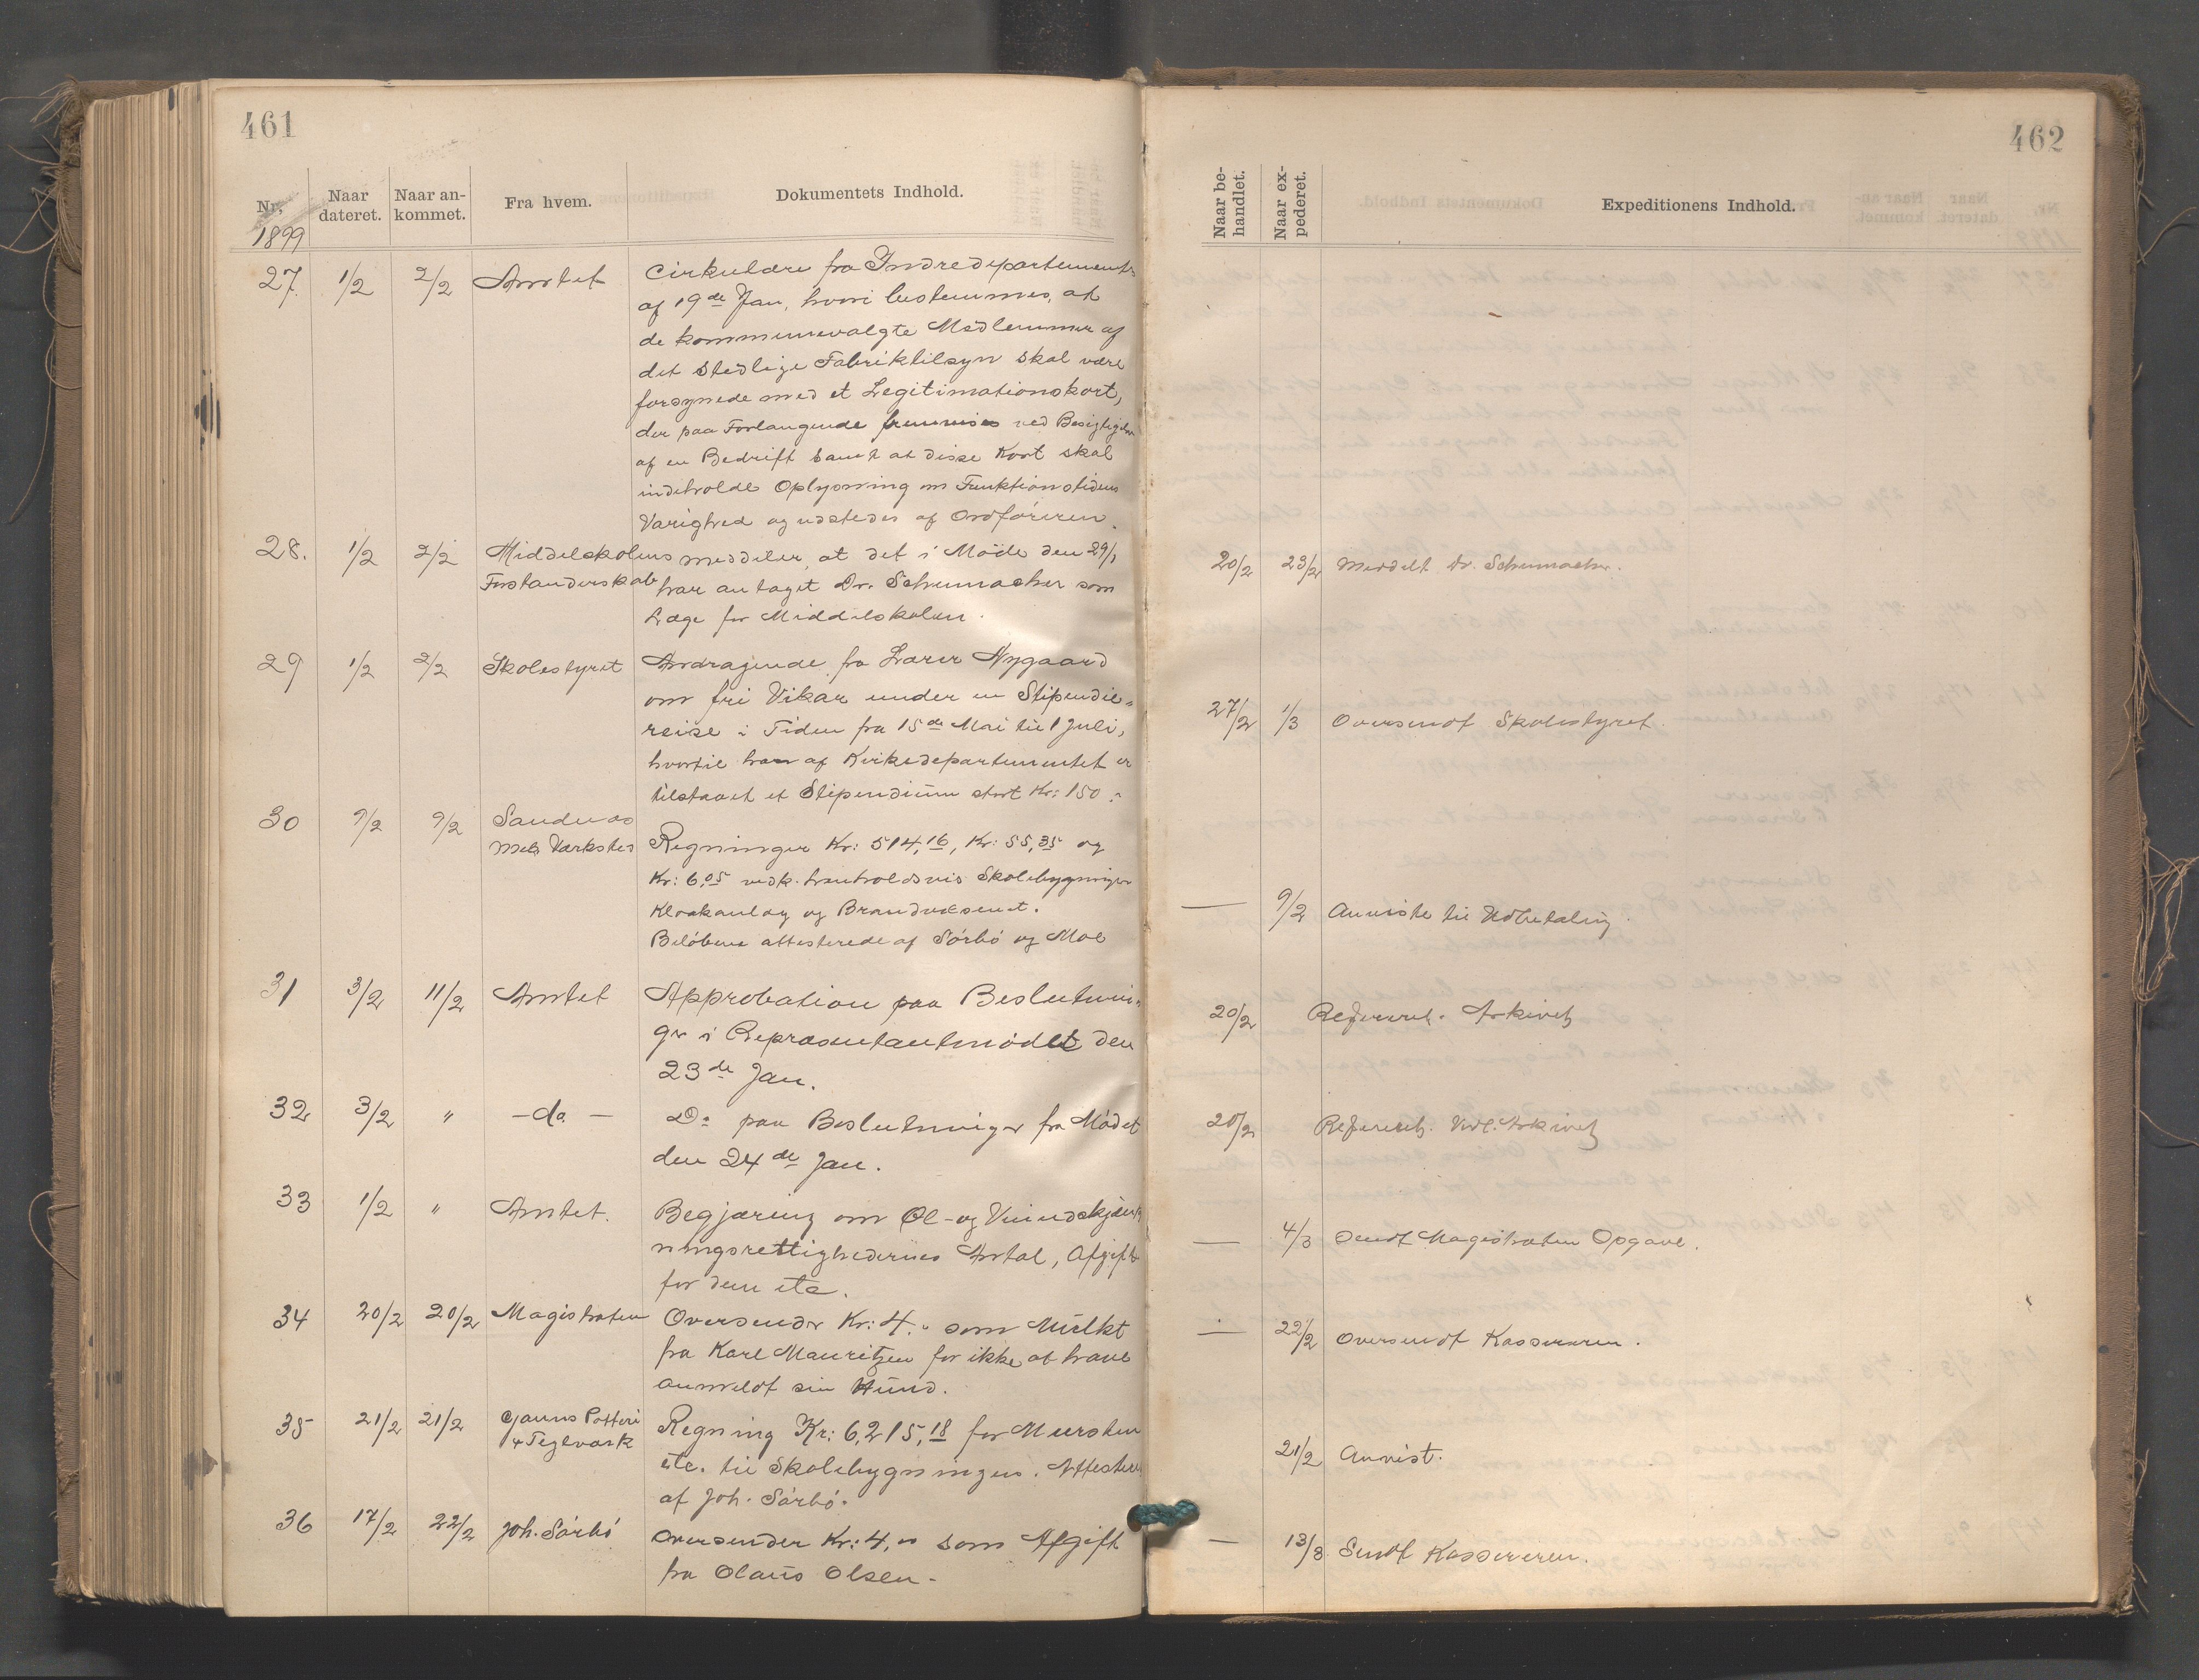 461
Nr. Naar dateret. Naar ankommet. Fra hvem. Dokumentets Indhold.
1899
27. 1/2 2/2 Amtet Cirkulære fra Indredepartementet
af 19de Jan, hvori bestemmes, at
de kommunevalgte Medlemmer af
det stedlige Fabriktilsyn skal være
forsynede med et Legitimationskort,
der paa Forlangende fremvises ved Besigtigelse
af en Bedrift samt at disse Kort skal
indeholde Oplysning om Funktionstidens
Varighed og udstedes af Ordføreren.
28. 1/2 2/2 Middelskolens meddeler, at det i Møde den 29/1
Forstanderskab har antaget Dr. Schumacher som
Læge for Middelskolen.
29 1/2 2/2 Skolestyret Andragende fra Lærer Nygaard
om fri Vikar under en Stipendie-
reise i Tiden fra 15de Mai til 1 Juli,
hvortil han af Kirkedepartementet er
tilstaaet et Stipendium stort Kr: 150.-
30 9/2 9/2 Sandnæs
Mek Værksted Regninger Kr: 514,16, Kr: 55,35 og
Kr: 6,05 vedk. henholdsvis Skolebygningen
Kloakanlæg og Brandvæsenet.
Beløbene attesterede af Sörbö og Moe
31 3/2 11/2 Amtet Approbation paa Beslutnin-
ger i Repræsentantmødet den
23de Jan.
32 3/2 " - do. - Do paa Beslutninger fra Mödet
den 24de Jan.
33 1/2 " Amtet. Begjæring om Øl- og Vinudskjænk-
ningsrettighedernes Antal, Afgift
for dem etc.
34 20/2 20/2 Magistraten Oversender Kr: 4.- som Mülkt
fra Karl Mauritzen for ikke at have
anmeldt sin Hünd.
35 21/2 21/2 Ganns Potteri
& Teglværk Regning Kr: 6,215,18 for Mursten
etc. til Skolebygningen. Attesteret
af Joh. Sörbö.
36 17/2 22/2 Joh. Sörbö Oversender Kr: 4,00 som Afgift
fra Olaüs Olsen -
462
Naar behandlet. Naar expederet. Expeditionens Indhold.
20/2 23/2 Meddelt Dr. Schumacher.
27/2 1/3 Oversendt Skolestyret.
— 9/2 Anviste til Udbetaling.
20/2 Refereret. Arkivet
20/2 Refereret. Arkivet
— 4/3 Sendt Magistraten Opgave.
— 22/2 Oversendt Kassereren.
21/2 Anvist.
— 13/3 Sendt Kassereren.